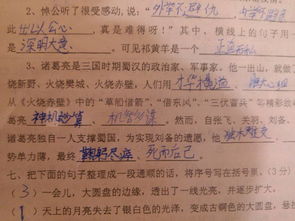 2、悼公听了很受感动,说:"外举不避仇,内举不避亲
此出以公心,真是难得呀!"其中,横线上的句子用一
是 深明大义,可见祁黄羊是一个 正直无私
3、诸葛亮是三国时期蜀汉的政治家、军事家。他一出山,就
烧新野、火烧樊城、火烧赤壁,人们用
从《火烧赤壁》中的"草船借箭"、"借东风"、"三伏雷兵"等精彩故
亮 神机妙算、机智多谋。然而,自张飞、关羽、刘备、
诸葛亮独自一人支撑蜀国,为实现刘备的遗愿,他 独木难支
势单力薄,最终 鞠躬尽瘁 死而后已
七、把下面的句子整理成一段通顺的话,将序号写在括号里。(3分)
(3)一会儿,大圆盘的边缘,透出了一线光亮,并逐步扩大。
(1)天上的月亮失去了银白色的光泽,变成古铜色的大圆盘,